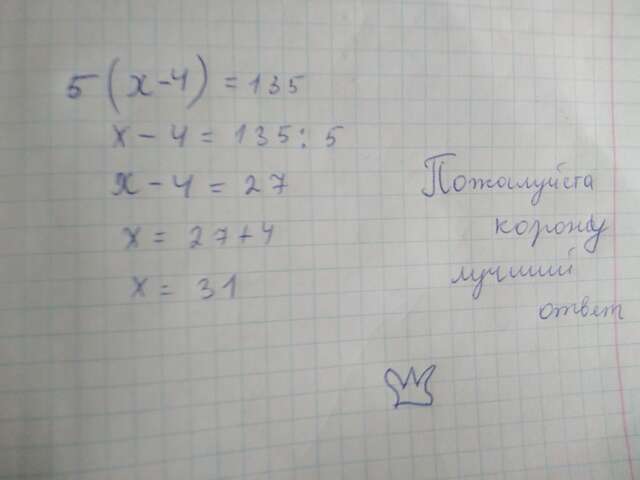 5(x-4) = 135
x - 4 = 135 : 5
x - 4 = 27
x = 27+4
x = 31
Пожалуйста
корону
лучший
ответ